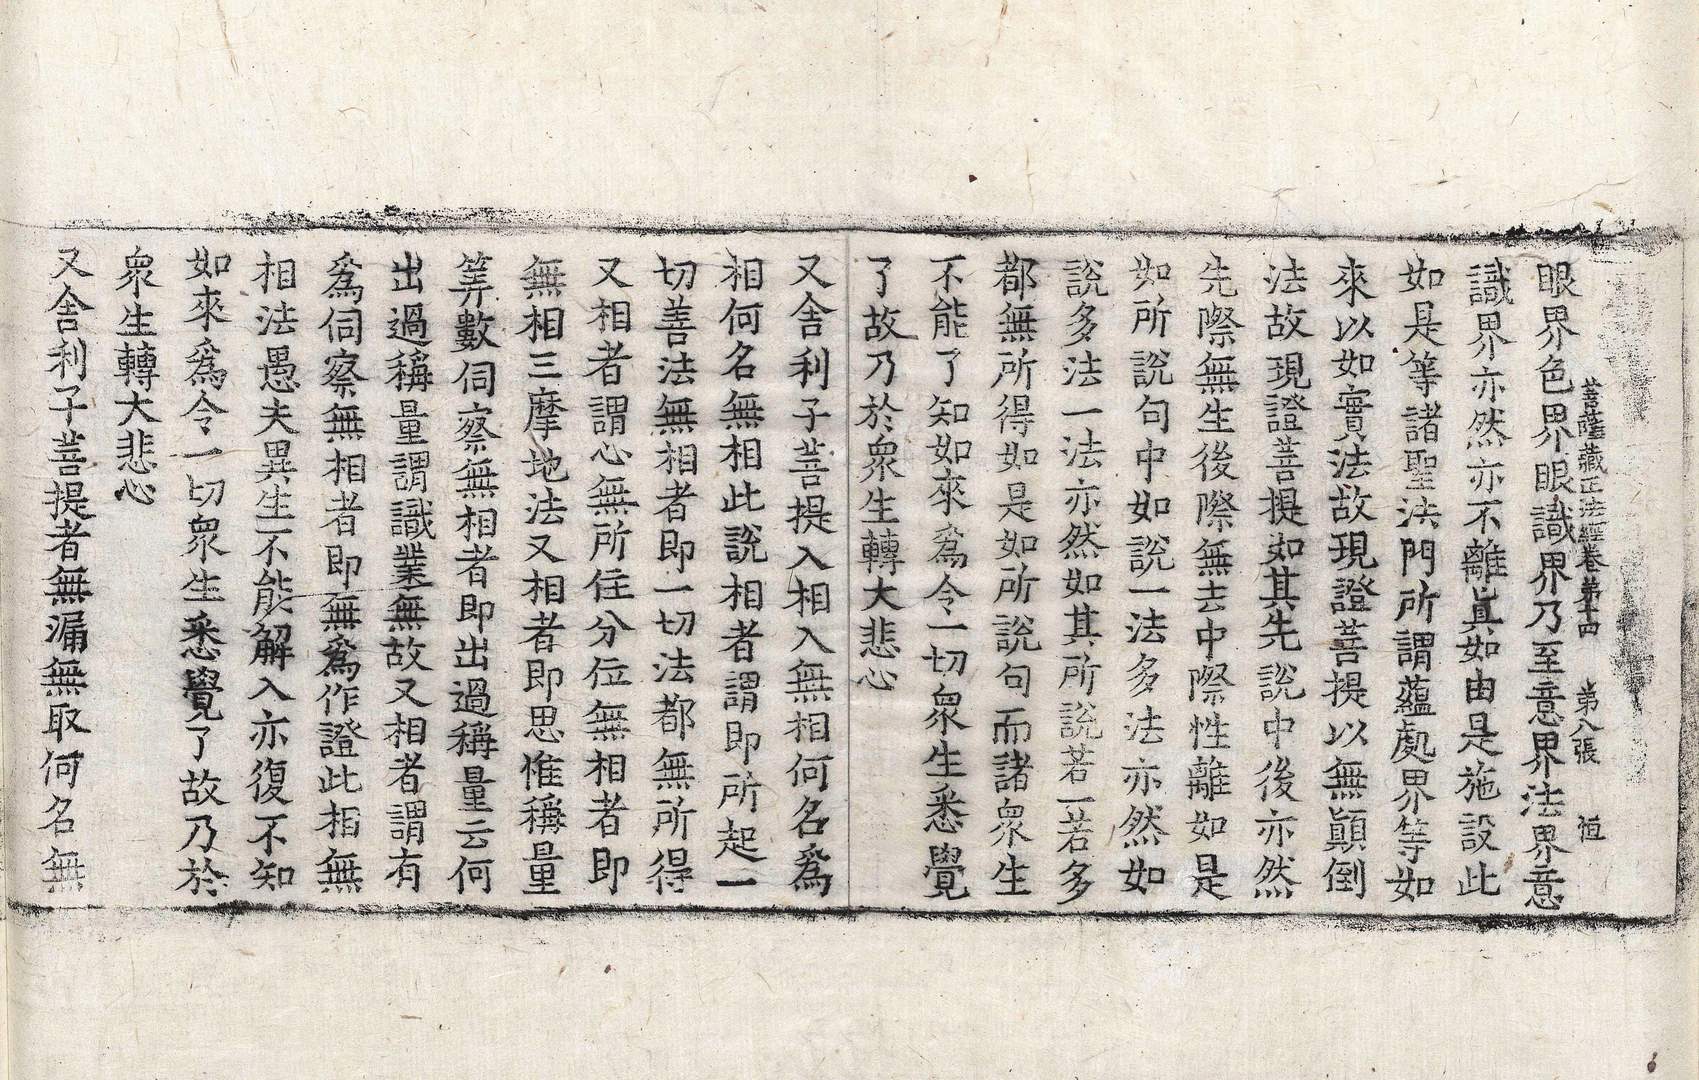 菩薩藏正法經卷第十四　第八張　恒
眼界色界眼識界乃至意界法界意
識界亦然亦不離真如由是施設此
如是等諸聖法門所謂蘊處界等如
來以如實法故現證菩提以無顛倒
法故現證菩提如其先說中後亦然
先際無生後際無去中際性離如是
如所說句中如說一法多法亦然如
說多法一法亦然如其所說若一若多
都無所得如是如所說句而諸衆生
不能了知如來爲令一切衆生悉覺
了故乃於衆生轉大悲心
又舍利子菩提入相入無相何名爲
相何名無相此說相者謂即所起一
切善法無相者即一切法都無所得
又相者謂心無所住分位無相者即
無相三摩地法又相者即思惟稱量
筭數伺察無相者即出過稱量云何
出過稱量謂識業無故又相者謂有
爲伺察無相者即無爲作證此相無
相法愚夫異生不能解入亦復不知
如來爲令一切衆生悉覺了故乃於
衆生轉大悲心
又舍利子菩提者無漏無取何名無